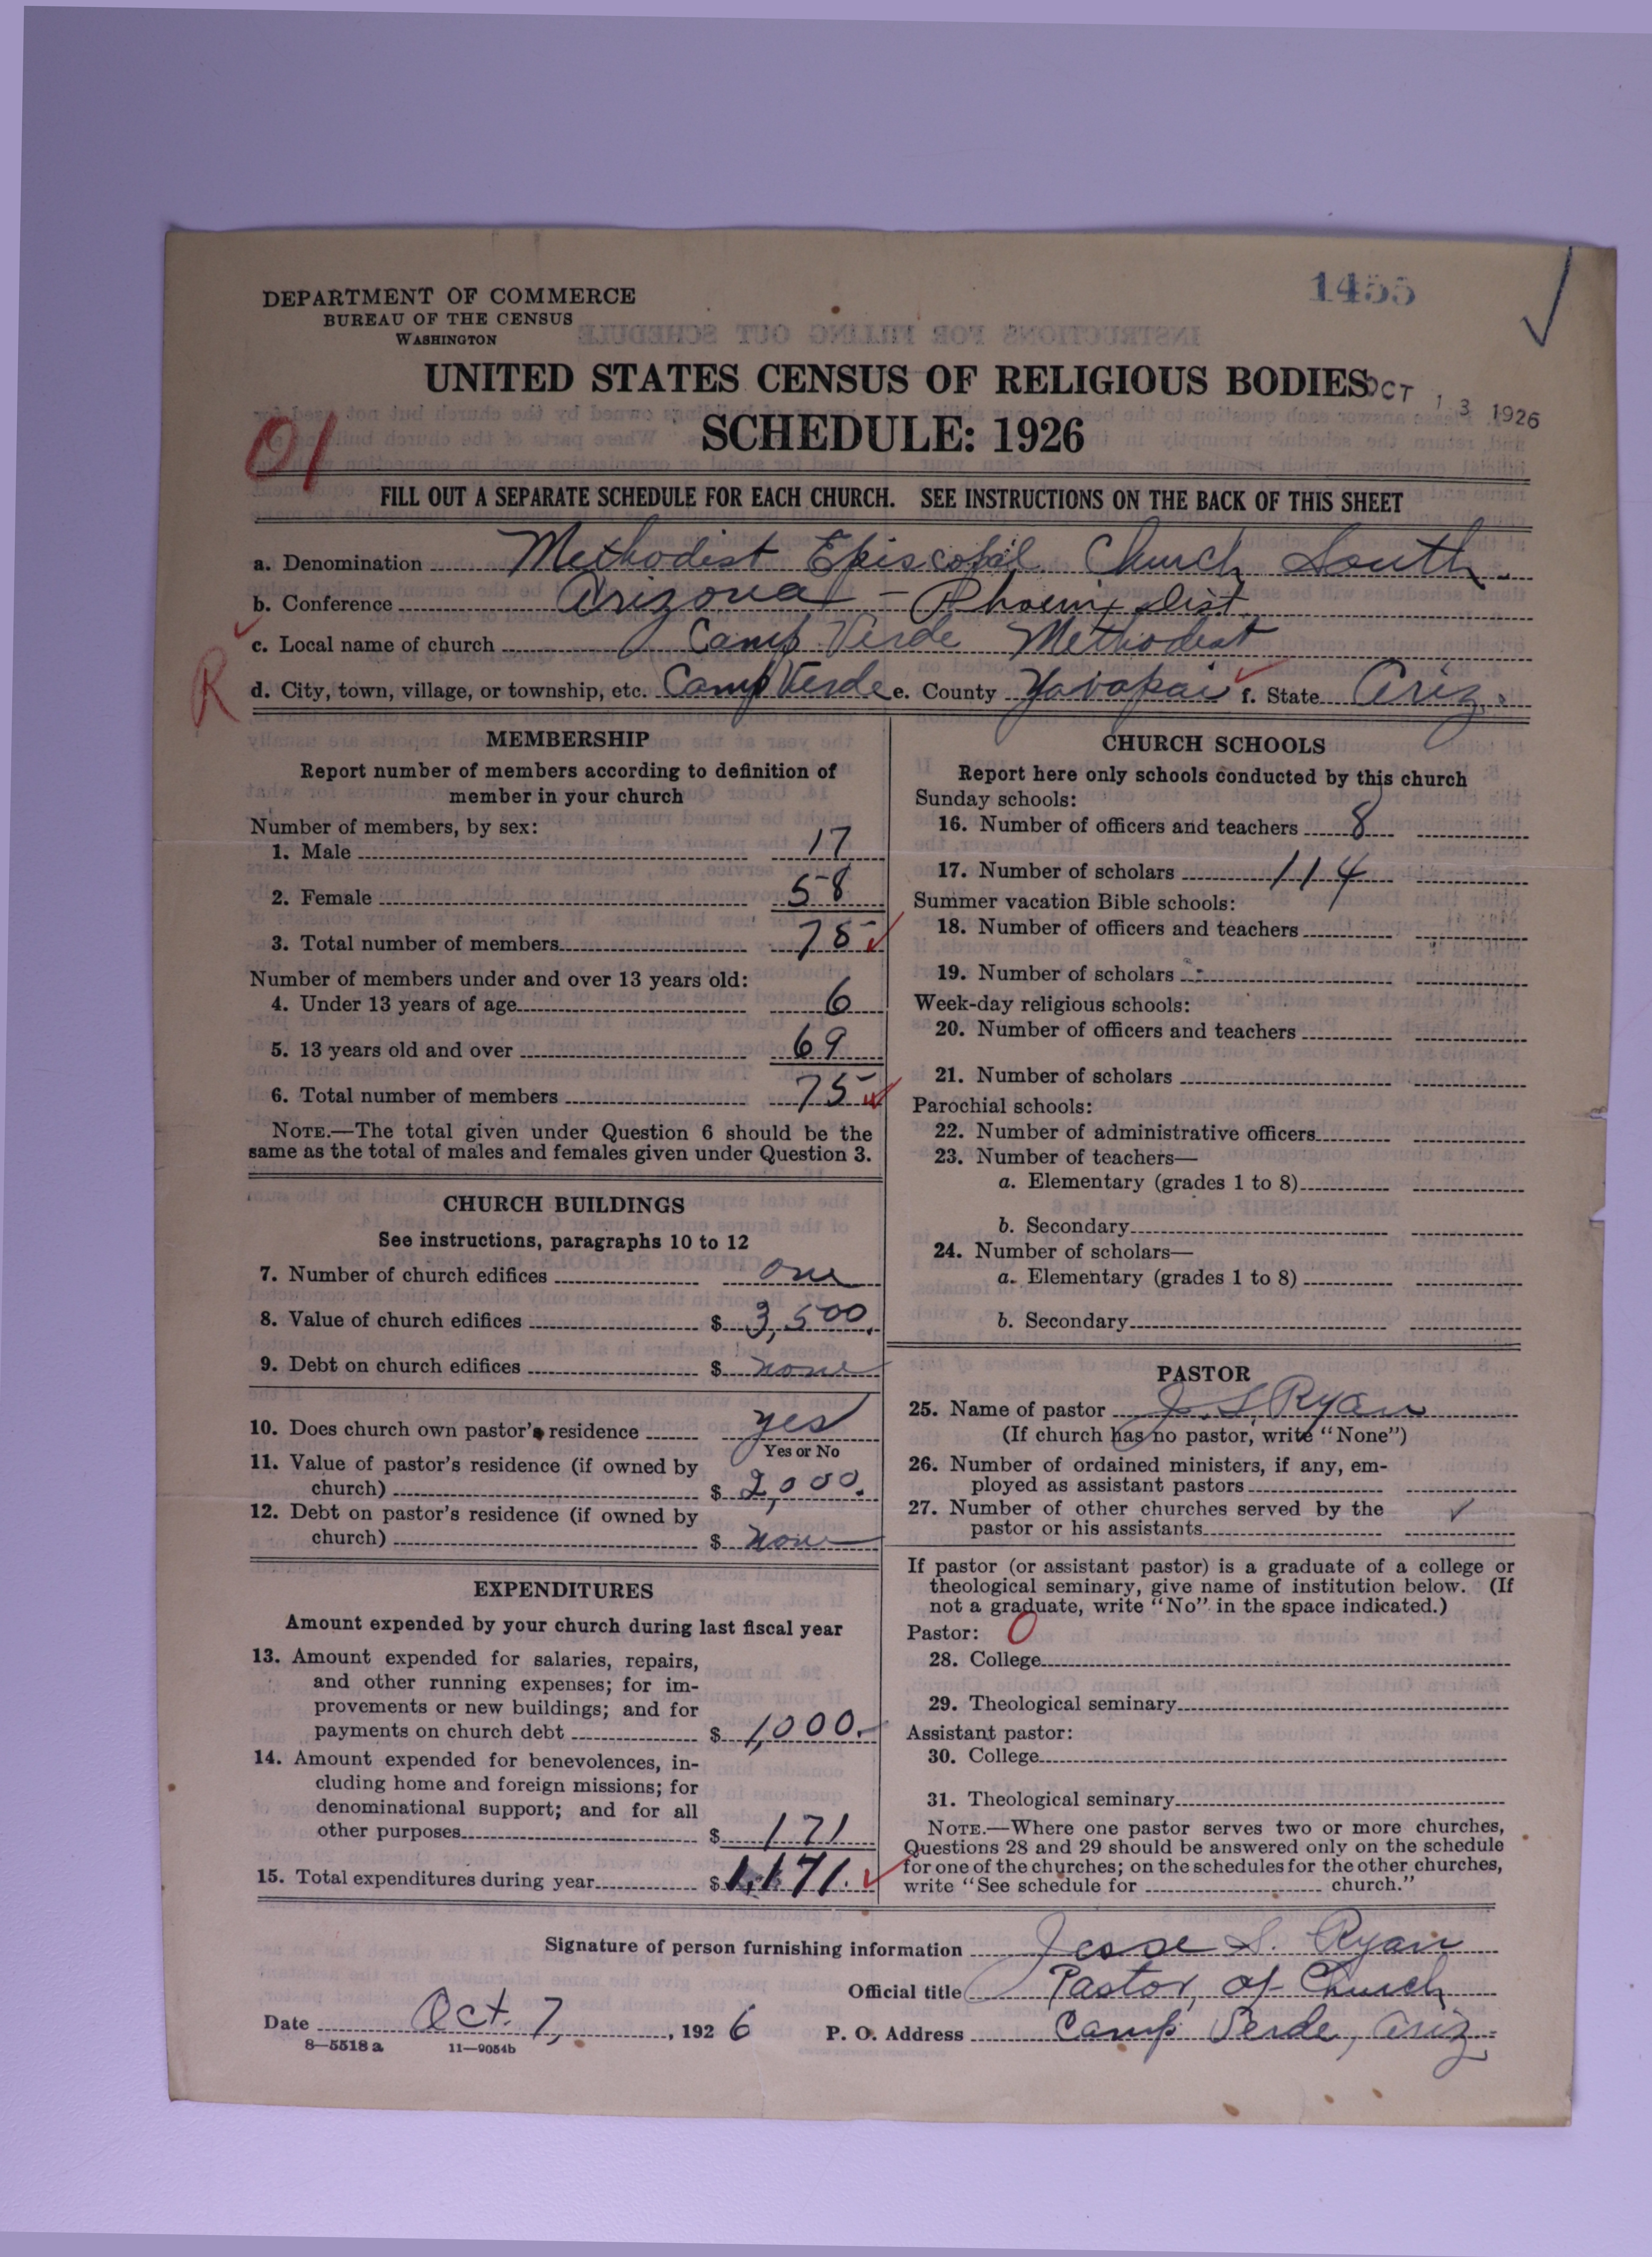 1455
DEPARTMENT OF COMMERCE
BUREAU OF THE CENSUS
WASHINGTON
UNITED STATES CENSUS OF RELIGIOUS BODIES
OCT 13 1926
SCHEDULE: 1926
01
FILL OUT A SEPARATE SCHEDULE FOR EACH CHURCH. SEE INSTRUCTIONS ON THE BACK OF THIS SHEET
a. Denomination Methodist Episcopal Church South.
b. Conference Arizona - Phoenix Dist
c. Local name of church Camp Verde Methodist
R
d. City, town, village, or township, etc. Camp Verde e. County Yavapai f. State Ariz.
MEMBERSHIP
Report number of members according to definition of
member in your church
Number of members, by sex:
1. Male 17
2. Female 58
3. Total number of members 75
Number of members under and over 13 years old:
4. Under 13 years of age 6
5. 13 years old and over 69
6. Total number of members 75
NOTE.—The total given under Question 6 should be the
same as the total of males and females given under Question 3.
CHURCH BUILDINGS
See instructions, paragraphs 10 to 12
7. Number of church edifices one
8. Value of church edifices $ 3,500.
9. Debt on church edifices $ none
10. Does church own pastor's residence yes
Yes or No
11. Value of pastor's residence (if owned by
church) $ 2,000.
12. Debt on pastor's residence (if owned by
church) $ none
EXPENDITURES
Amount expended by your church during last fiscal year
13. Amount expended for salaries, repairs,
and other running expenses; for im-
provements or new buildings; and for
payments on church debt $ 1,000.
14. Amount expended for benevolences, in-
cluding home and foreign missions; for
denominational support; and for all
other purposes $ 171
15. Total expenditures during year $ 1,171.
CHURCH SCHOOLS
Report here only schools conducted by this church
Sunday schools:
16. Number of officers and teachers 8
17. Number of scholars 114
Summer vacation Bible schools:
18. Number of officers and teachers
19. Number of scholars
Week-day religious schools:
20. Number of officers and teachers
21. Number of scholars
Parochial schools:
22. Number of administrative officers
23. Number of teachers—
a. Elementary (grades 1 to 8)
b. Secondary
24. Number of scholars—
a. Elementary (grades 1 to 8)
b. Secondary
PASTOR
25. Name of pastor J. S. Ryan
(If church has no pastor, write "None")
26. Number of ordained ministers, if any, em-
ployed as assistant pastors
27. Number of other churches served by the
pastor or his assistants
If pastor (or assistant pastor) is a graduate of a college or
theological seminary, give name of institution below. (If
not a graduate, write "No" in the space indicated.)
Pastor: 0
28. College
29. Theological seminary
Assistant pastor:
30. College
31. Theological seminary
NOTE.—Where one pastor serves two or more churches,
Questions 28 and 29 should be answered only on the schedule
for one of the churches; on the schedules for the other churches,
write "See schedule for church."
Signature of person furnishing information Jesse S. Ryan
Official title Pastor of Church
Date Oct. 7, 1926 P. O. Address Camp Verde, Ariz.
8—5518 a 11—9054b